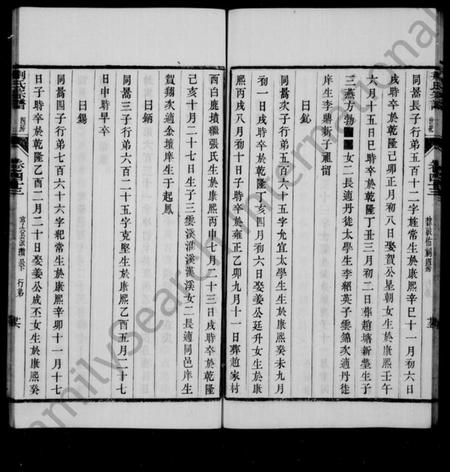 同暠長子行弟五百十二字旌常生於康熙辛巳十一月初六日
戌時卒於乾隆己卯正月初八日娶賀公星朝女生於康熙壬午
六月十五日巳時卒於乾隆丁丑三月初二日葬趙塘新塋生子
三燕方勃 女二長適丹徒太學生李紹英子雲錦次適丹徒
庠生李 新子祖留
日釚
同暠次子行弟五百三十一字允宜太學生生於康熙癸未九月
初一日戌時卒於乾隆丁亥四月初六日娶姜公廷升女生於康
熙丙戌八月初十日 時卒於雍正乙卯九月十一日葬趙家村
西白鹿墳繼張氏生於康熙丙申七月二十三日戌時卒於乾隆
癸亥十月二十七日生子三雲溪淮溪漢溪女二長適同邑庠生
賀翔次適金壇庠生于起鳳
日鈵
同暠三子行弟六百二十五字克堅生於康熙乙酉五月二十七
日申時早卒
日錫
同暠四子行弟七百六十六字軺常生於康熙辛卯十一月十七
日子時卒於乾隆乙酉二月二十日娶姜公成丕女生於康熙癸
卷四十三